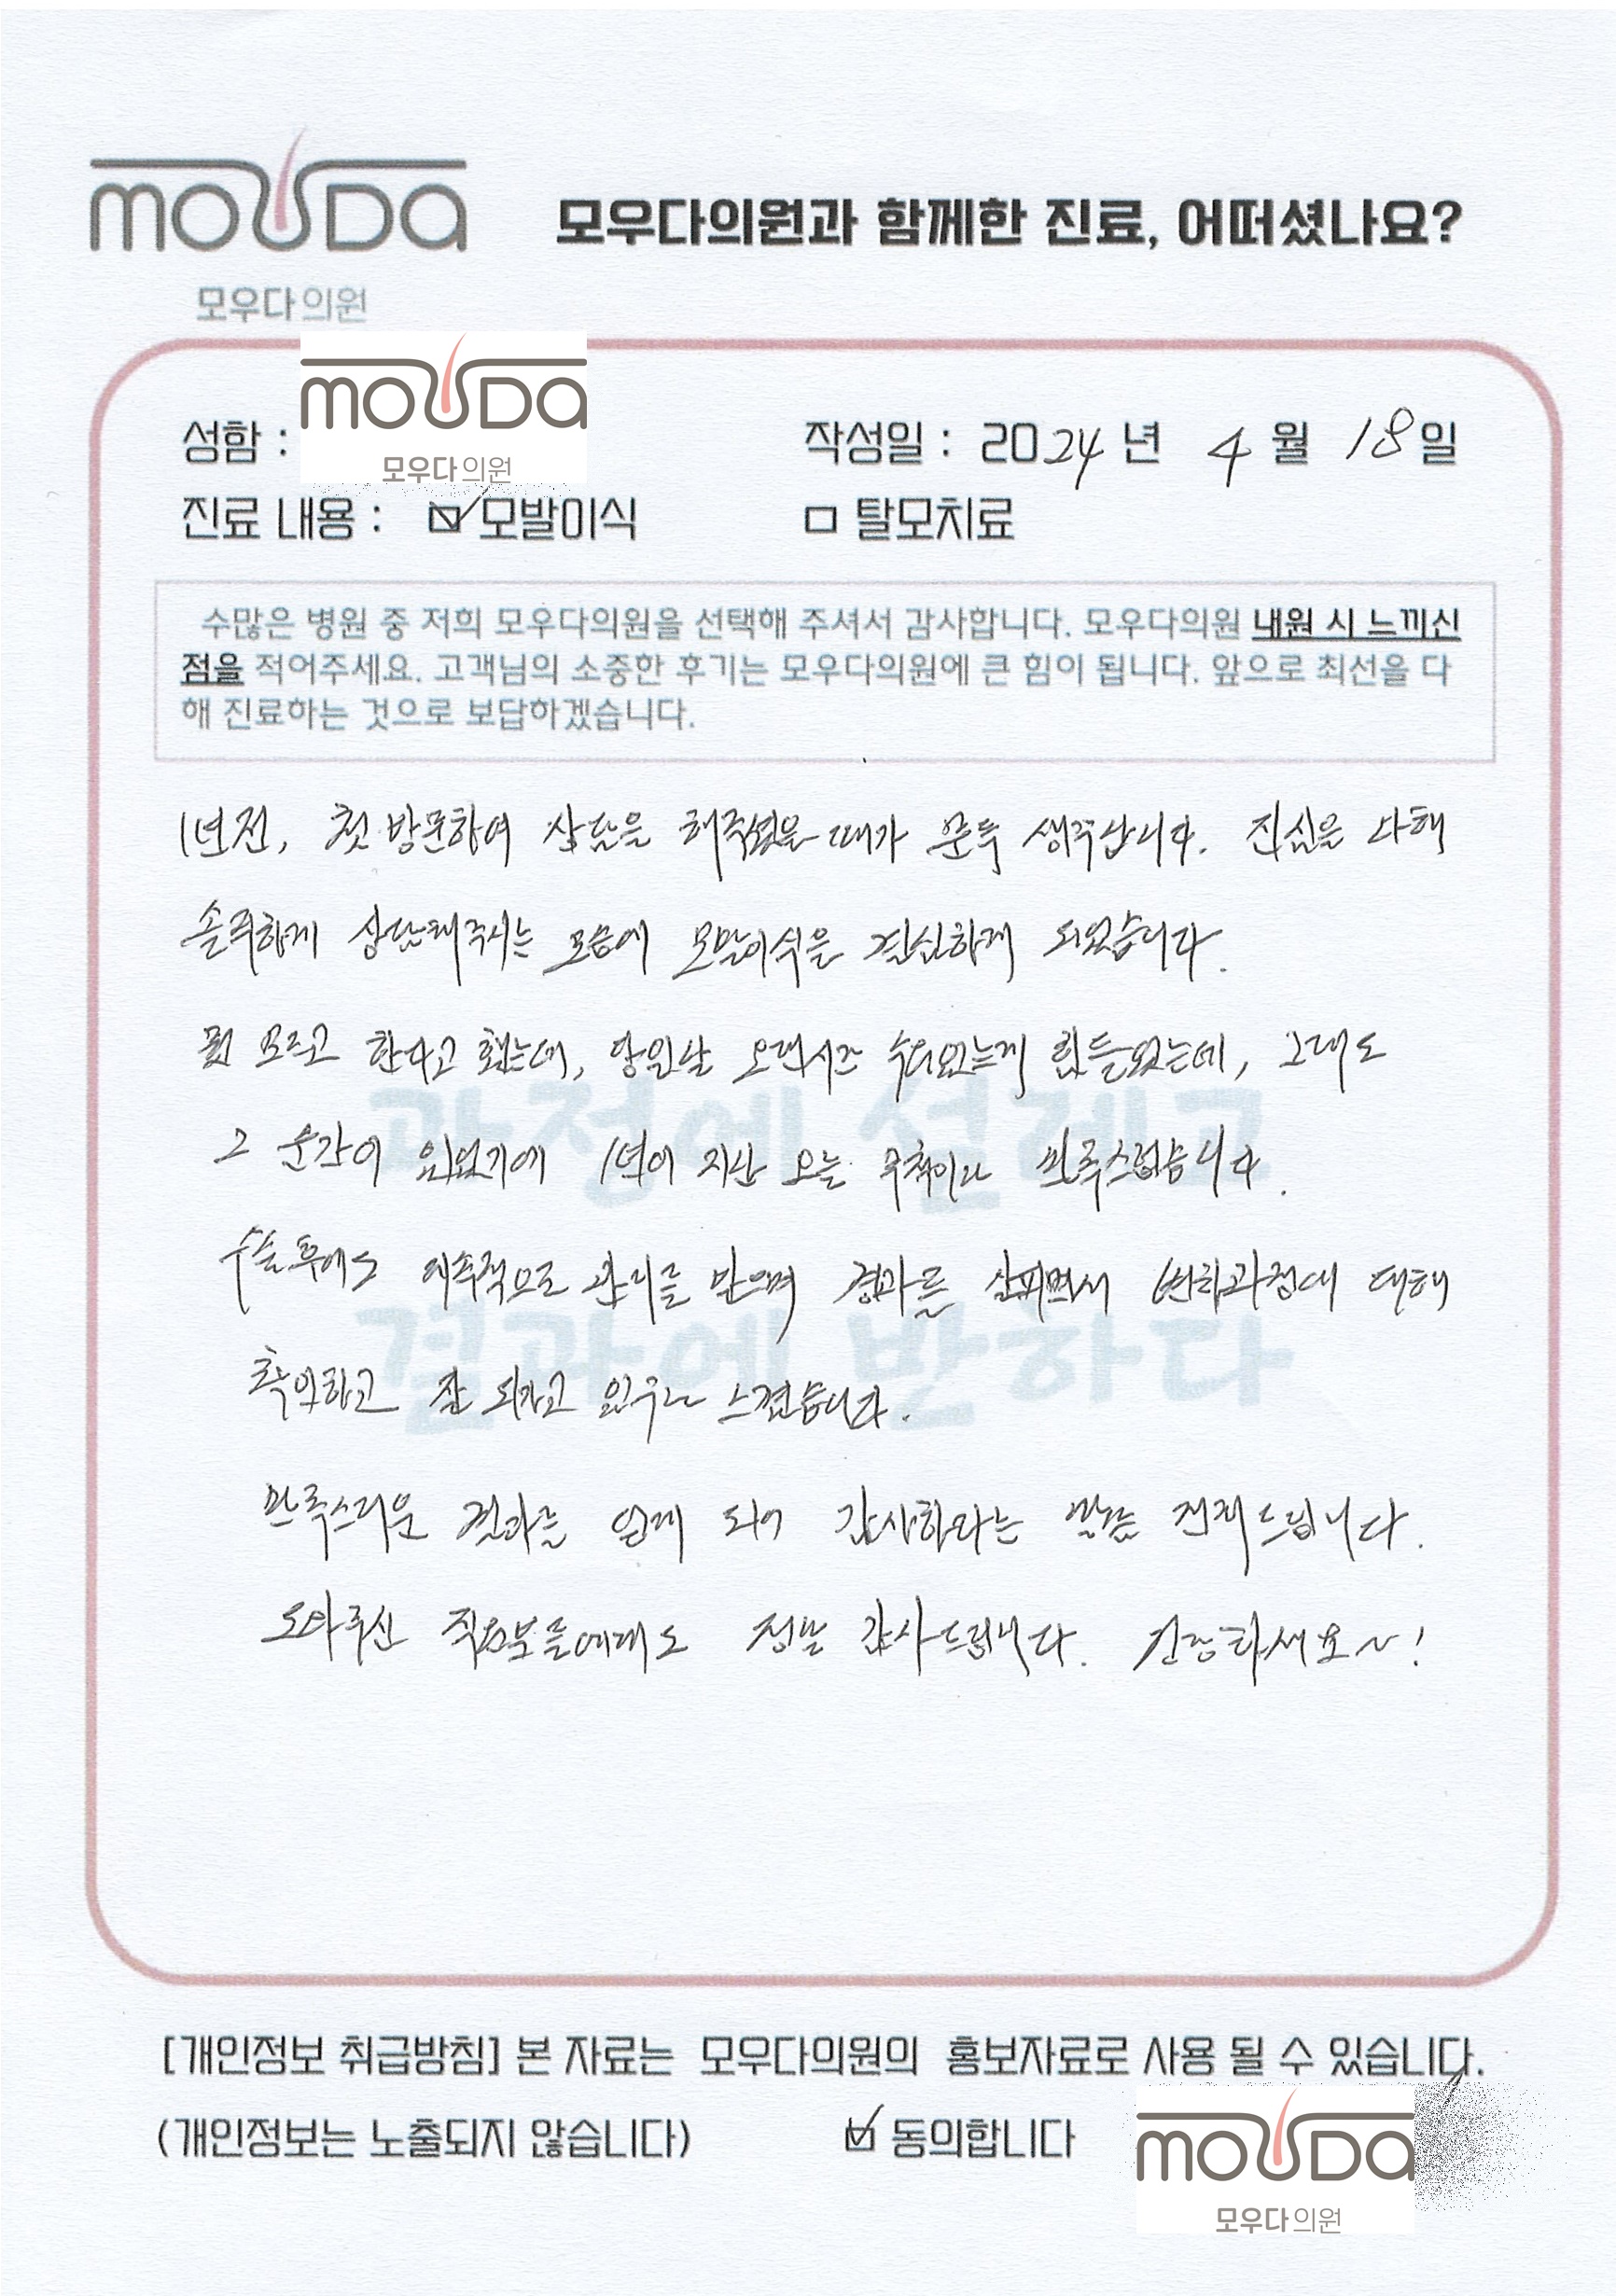 mouDa
모우다의원
모우다의원과 함께한 진료, 어떠셨나요?
mouDa
모우다의원
성함 :
작성일 : 2024년 4월 18일
진료 내용 : ☑ 모발이식 ☐ 탈모치료
수많은 병원 중 저희 모우다의원을 선택해 주셔서 감사합니다. 모우다의원 내원 시 느끼신
점을 적어주세요. 고객님의 소중한 후기는 모우다의원에 큰 힘이 됩니다. 앞으로 최선을 다
해 진료하는 것으로 보답하겠습니다.
과정에 설레고
결과에 반하다
1년전, 첫 방문하여 상담을 해주셨을 때가 문득 생각납니다. 진심을 다해
솔직하게 상담해주시는 모습에 모발이식을 결심하게 되었습니다.
뭣 모르고 한다고 했는데, 당일날 오랜시간 누워있는게 힘들었는데, 그래도
그 순간이 있었기에 1년이 지난 오늘 무척이나 만족스럽습니다.
수술후에도 지속적으로 관리를 받으며 경과를 살피면서 변화과정에 대해
확인하고 잘 되가고 있구나 느꼈습니다.
만족스러운 결과를 얻게 되어 감사하다는 말씀 전해드립니다.
직원분들에게도 정말 감사드립니다. 건강하세요~!
[개인정보 취급방침] 본 자료는 모우다의원의 홍보자료로 사용 될 수 있습니다.
(개인정보는 노출되지 않습니다) ☑ 동의합니다
mouDa
모우다의원